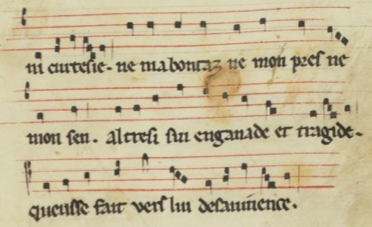 ni curtesie. ne ma bontaz ne mon pres ne
mon sen. altresi sui enganade et tragide.
queusse fait vers lui desauinence.